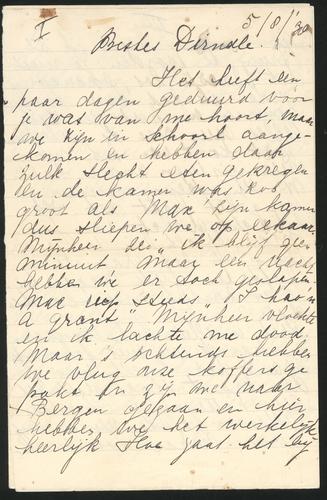 I
5/8/'30
Bestes Dirndle.
Het heeft een
paar dagen geduurd voor
je wat van me hoort, maar
we zijn in Schoorl aange-
komen en hebben daar
zulk slecht eten gekregen
en de kamer was zoo
groot als Max zijn kamer
dus sliepen we op elkaar
Mijnheer zei „ik blijf geen
minuut maar een nacht
hebben we er toch geslapen.
Max riep steeds
Mijnheer vloekte
en ik lachte me dood.
Maar 's ochtends hebben
we vlug onze koffers ge
pakt en zijn we naar
Bergen gegaan en hier
hebben we het werkelijk
heerlijk Hoe gaat het bij